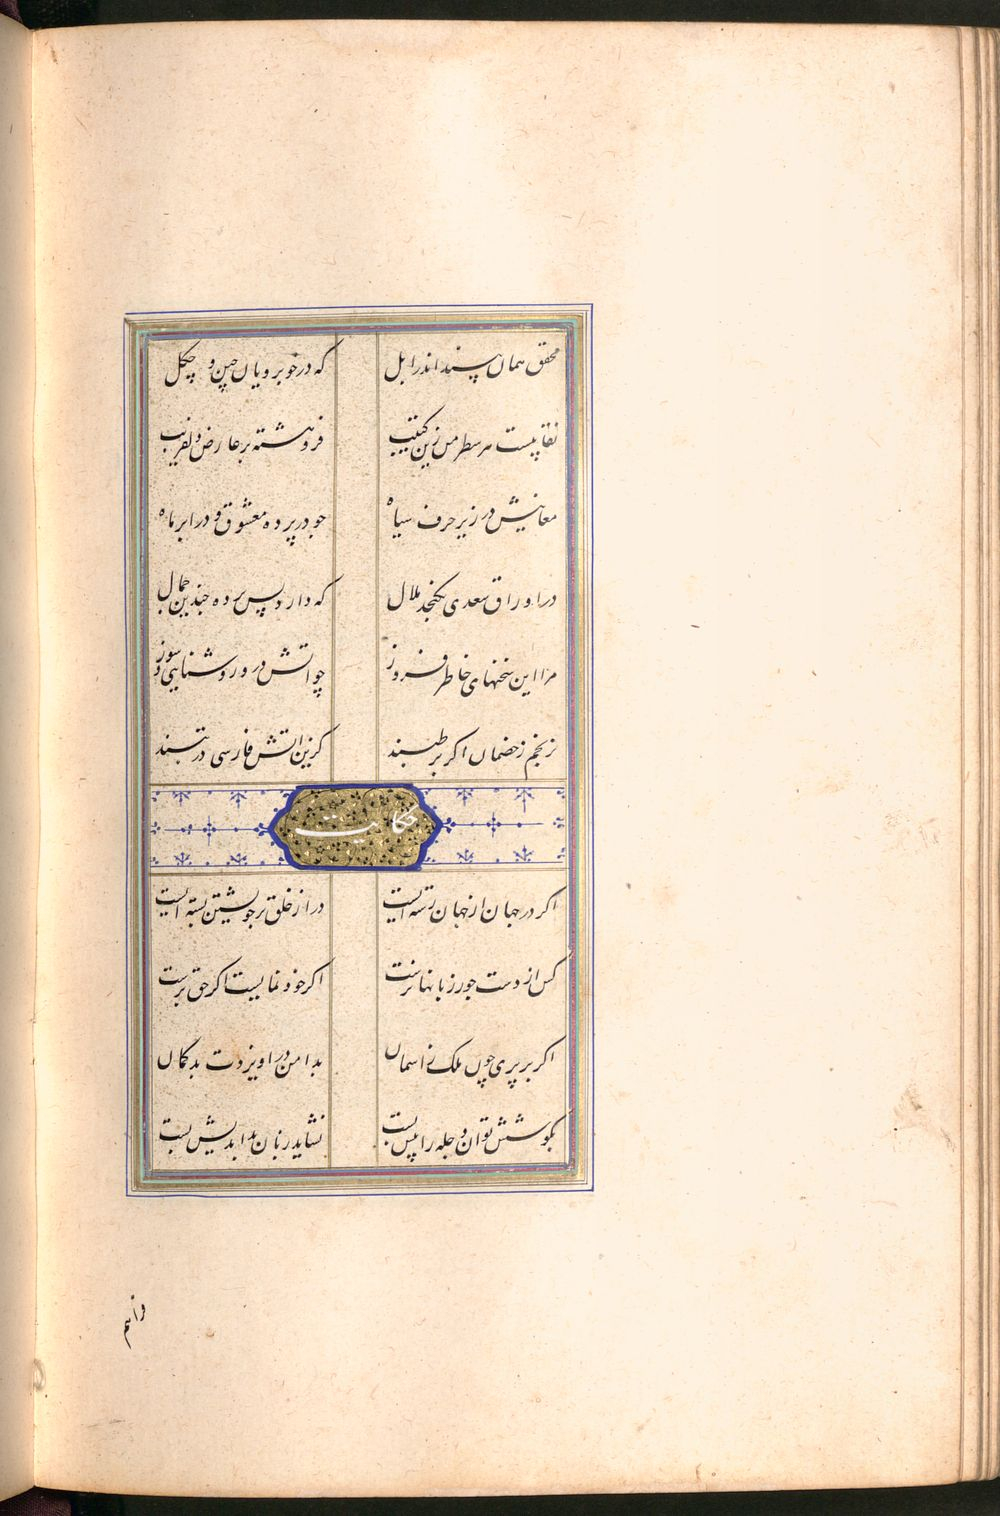 محقق همان بیند اندر ابل که در خوبرویان چین و چگل
نقابیست هر سطر من زین کتیب فروهشته بر عارض دلفریب
معانیش در زیر حرف سیاه چو در پرده معشوق و در ابر ماه
در اوراق سعدی نگنجد ملال که دارد پس پرده چندین جمال
مرا این سخنهای خاطر فروز چو آتش درو روشنایی و سوز
نرنجم ز خصمان اگر بر طپند کزین آتش فارسی در تبند
حکایت
اگر در جهان از جهان رسته ایست در از خلق بر خویشتن بسته ایست
کس از دست جور زبانها نرست اگر خود نمایست اگر حق پرست
اگر بر پری چون ملک ز آسمان بدامن در آویزدت بد گمان
بکوشش توان دجله را پیش بست نشاید زبان بد اندیش بست
فراهم